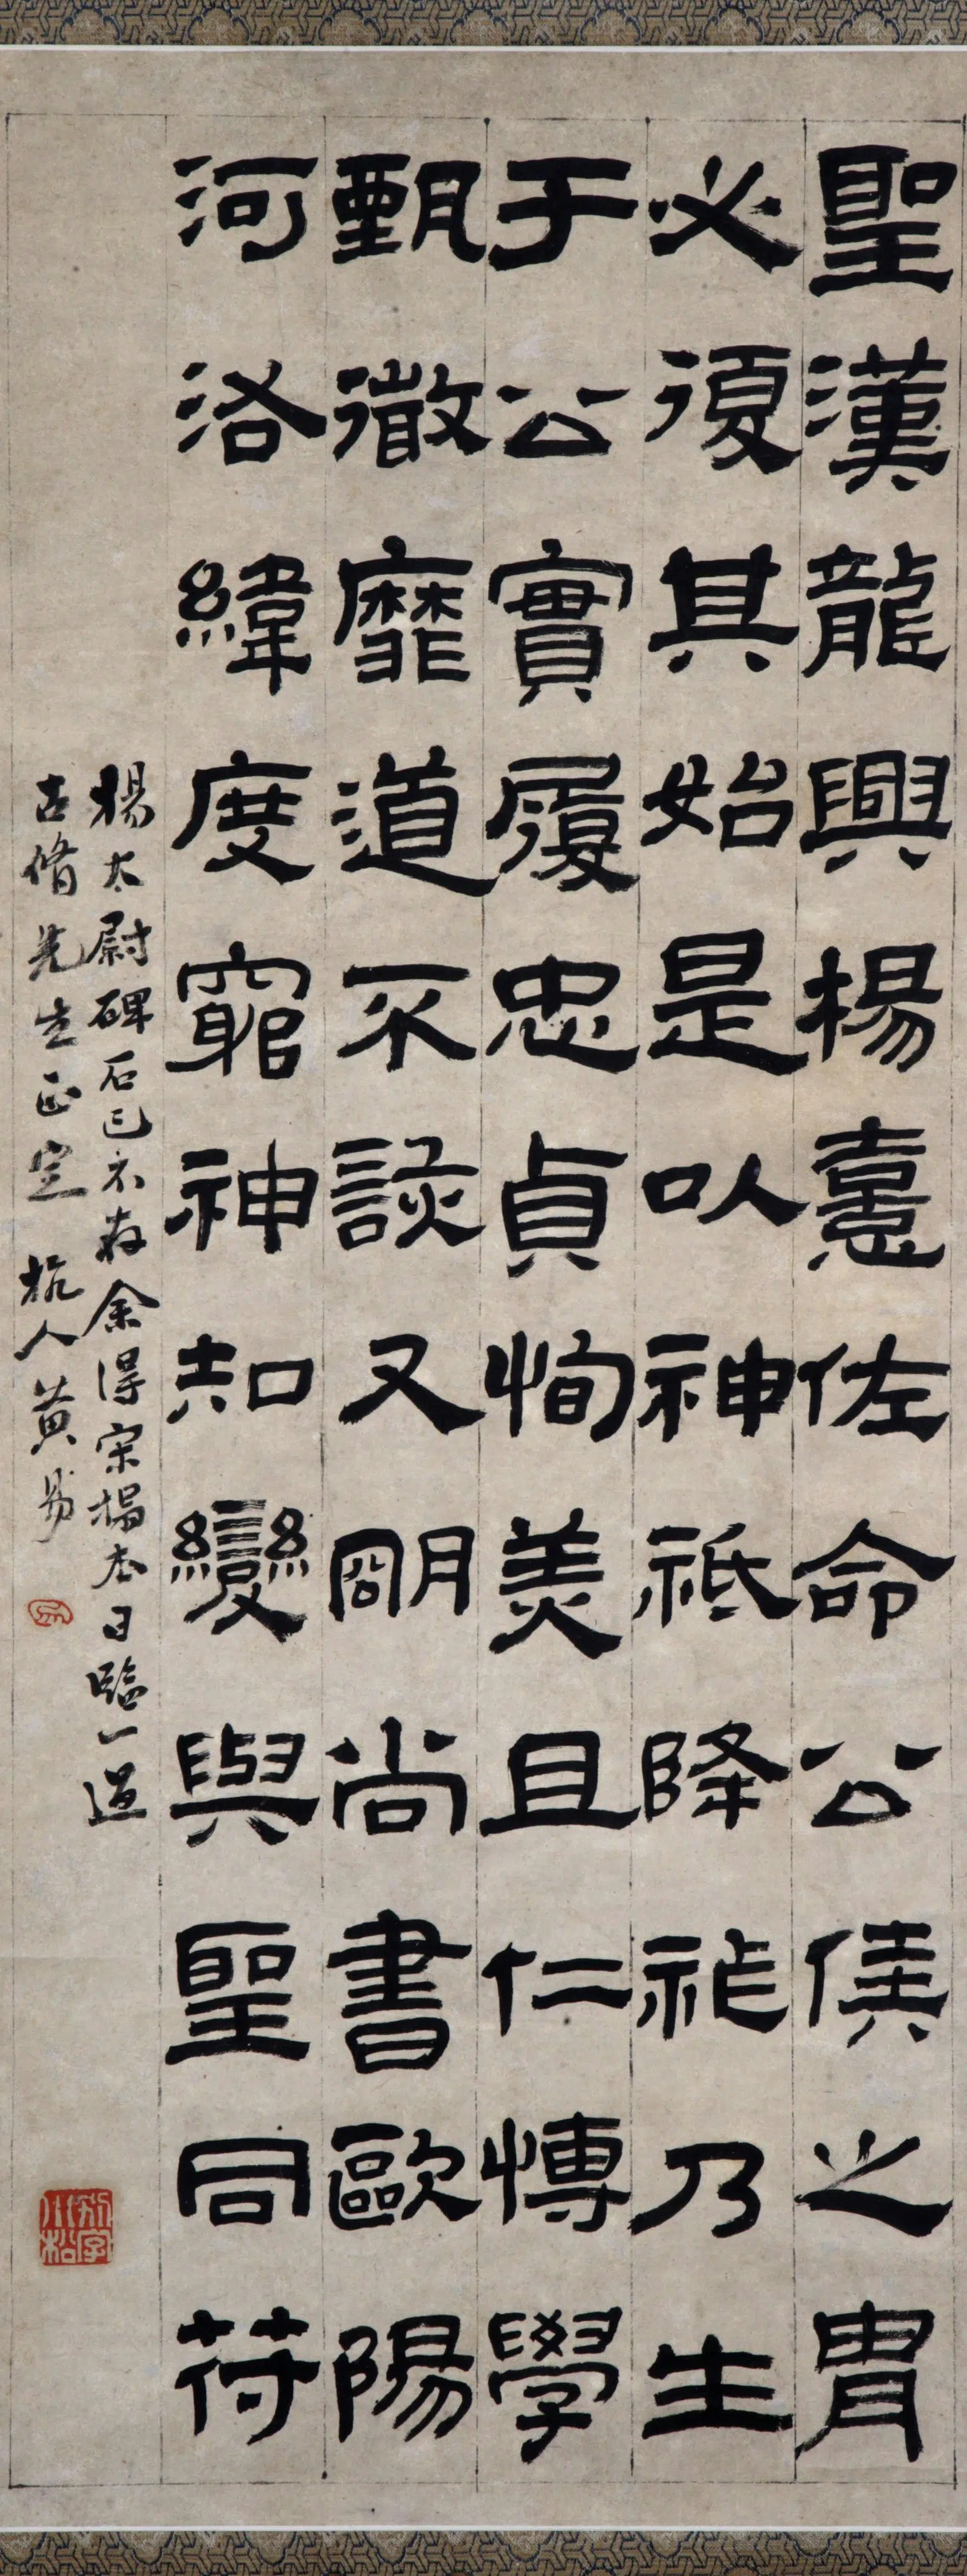 聖漢龍興楊憙佐命公侯之冑
必復其始是以神祇降祉乃生
于公實履忠貞恂美且仁博學
甄徹靡道不該又明尚書歐陽
河洛緯度窮神知變與聖同符
楊太尉碑石已不存余得宋榻本日臨一過
古脩先生正定 杭人黃易